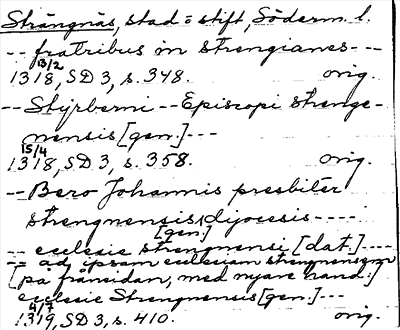 Strängnäs, stad o stift, Söderm. l.
-- fratribus in strengianes---
13/2
1318, SD 3, s. 348. orig.
-- Styrberni -- Episcopi strenge-
nensis [gen.] ---
15/4
1318, SD 3, s. 358. orig.
-- Bero Johannis presbiter
strengnensis dyocesis ----
[gen.]
-- ecclesie strengnensi [dat.] ----
-- ad ipsam ecclesiam strengnensem
[på frånsidan, med nyare hand:]
ecclesie Strengnensis [gen.] ---
4/7
1319, SD 3, s. 410. orig.